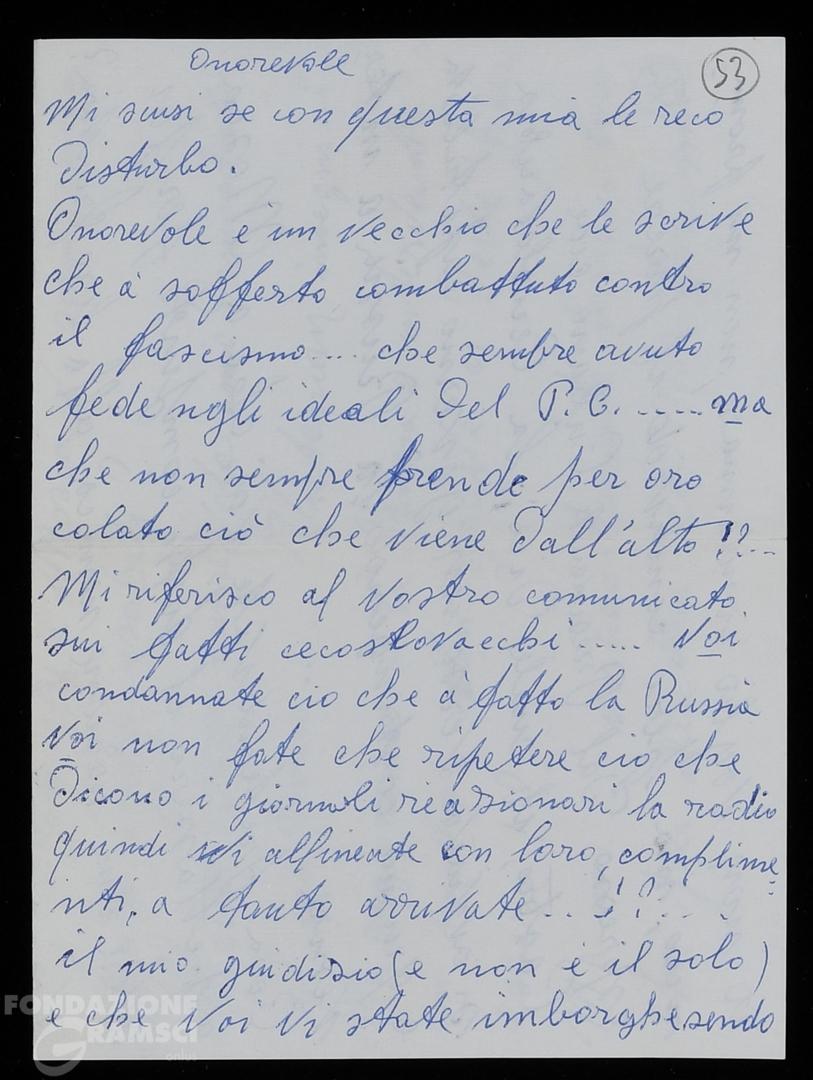 Onorevole
53
Mi scusi se con questa mia le reco
Disturbo.
Onorevole è un vecchio che le scrive
che à sofferto combattuto contro
il fascismo.... che sempre avuto
fede negli ideali Del P.C. ..... ma
che non sempre prende per oro
colato ciò che viene Dall'alto!?...
Mi riferisco al vostro comunicato
sui fatti cecoslovacchi ..... Voi
condannate cio che à fatto la Russia
Voi non fate che ripetere cio che
Dicono i giornali reazionari la radio
quindi vi allineate con loro, complime
nti, a tanto arrivate...!?...
il mio giudizio (e non è il solo)
e che Voi vi state imborghesendo
FONDAZIONE
GRAMSCI
onlus